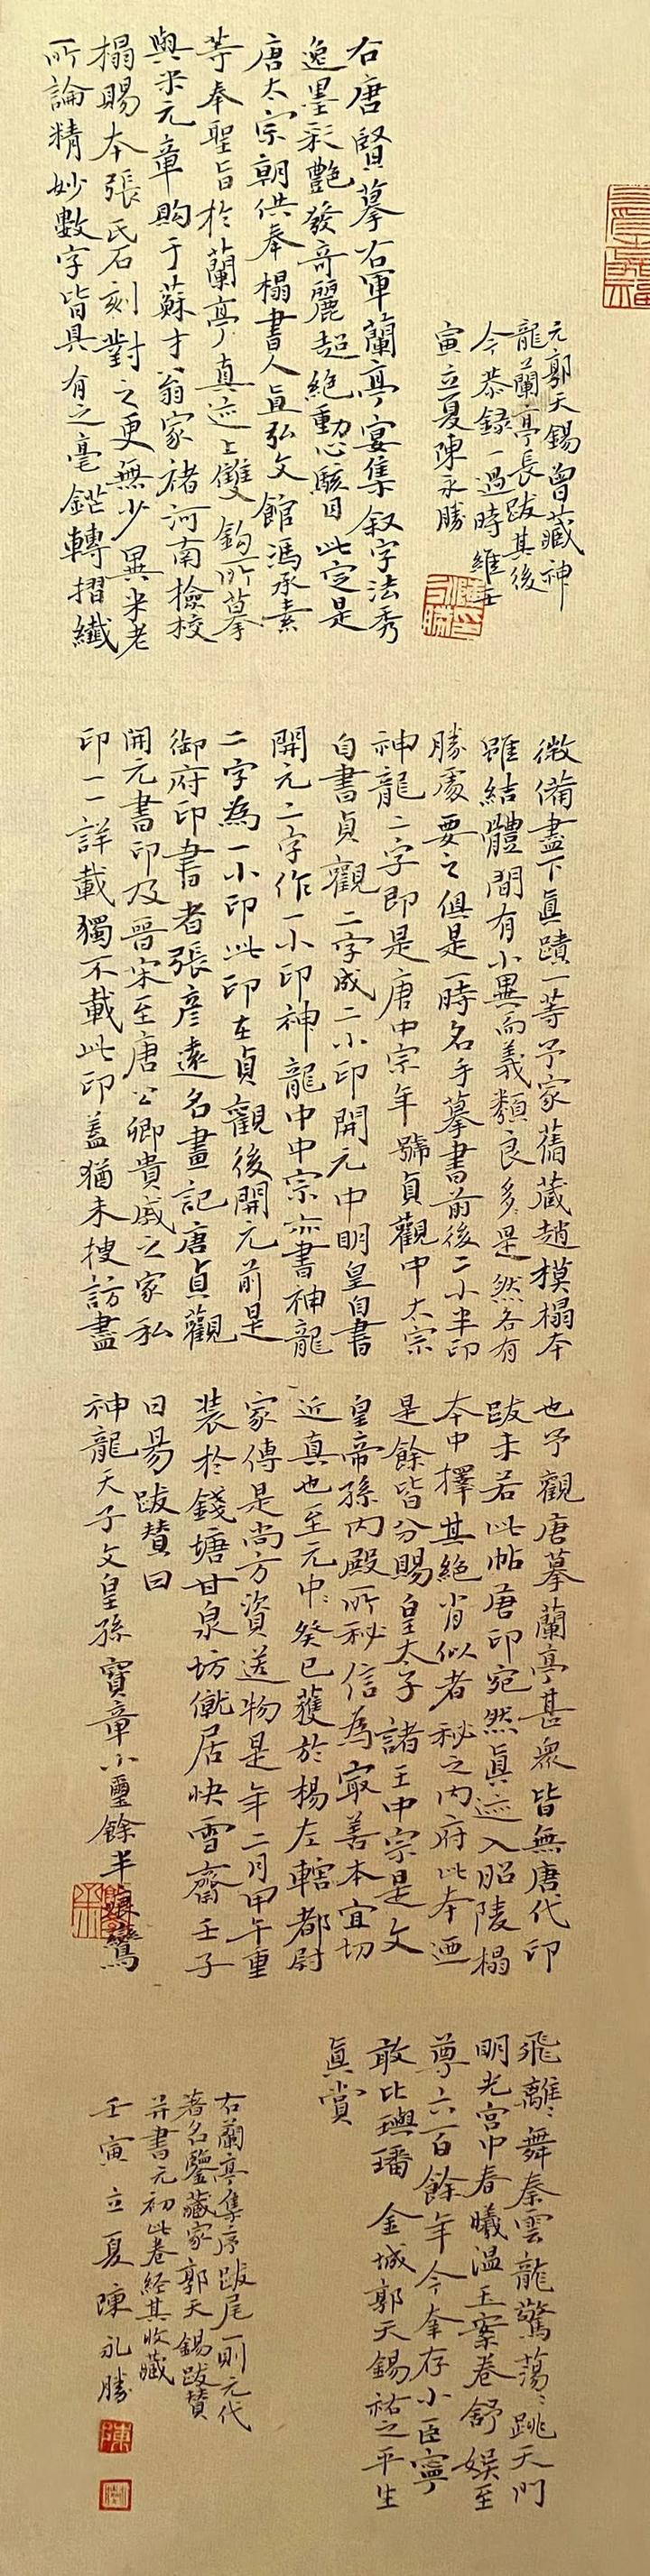 元郭天錫曾藏神
龍蘭亭長跋其後
今恭録一過時維壬
寅立夏陳永勝
右唐賢摹右軍蘭亭宴集叙字法秀
逸墨彩艷發奇麗超絕動心駭目此定是
唐太宗朝供奉榻書人直弘文館馮承素
等奉聖旨於蘭亭真迹上雙鉤所摹
與米元章購于蘇才翁家褚河南檢校
榻賜本張氏石刻對之更無少異米老
所論精妙數字皆具有之毫鋩轉摺纖
微備盡下真蹟一等予家舊藏趙模榻本
雖結體間有小異而義類良多是然各有
勝處要之俱是一時名手摹書前後二小半印
神龍二字即是唐中宗年號貞觀中太宗
自書貞觀二字成二小印開元中明皇自書
開元二字作一小印神龍中中宗亦書神龍
二字為一小印此印在貞觀後開元前是
御府印書者張彦遠名畫記唐貞觀
開元書印及晉宋至唐公卿貴戚之家私
印一一詳載獨不載此印蓋猶未搜訪盡
也予觀唐摹蘭亭甚衆皆無唐代印
跋未若此帖唐印宛然真迹入昭陵榻
本中擇其絕肖似者秘之内府此本迺
是餘皆分賜皇太子諸王中宗是文
皇帝孫内殿所秘信為冣善本宜切
近真也至元中癸巳獲於楊左轄都尉
家傳是尚方資送物是年二月甲午重
装於錢塘甘泉坊僦居快雪齋壬子
日易跋贊曰
神龍天子文皇孫寶章小璽餘半驤鸞
飛離離舞秦雲龍驚蕩蕩跳天門
明光宮中春曦温玉案卷舒娛至
尊六百餘年今幸存小臣寧
敢比璵璠 金城郭天錫祐之平生
真賞
右蘭亭集序跋尾一則元代
著名鑒藏家郭天錫跋贊
并書元初此卷经其收藏
壬寅立夏陳永勝